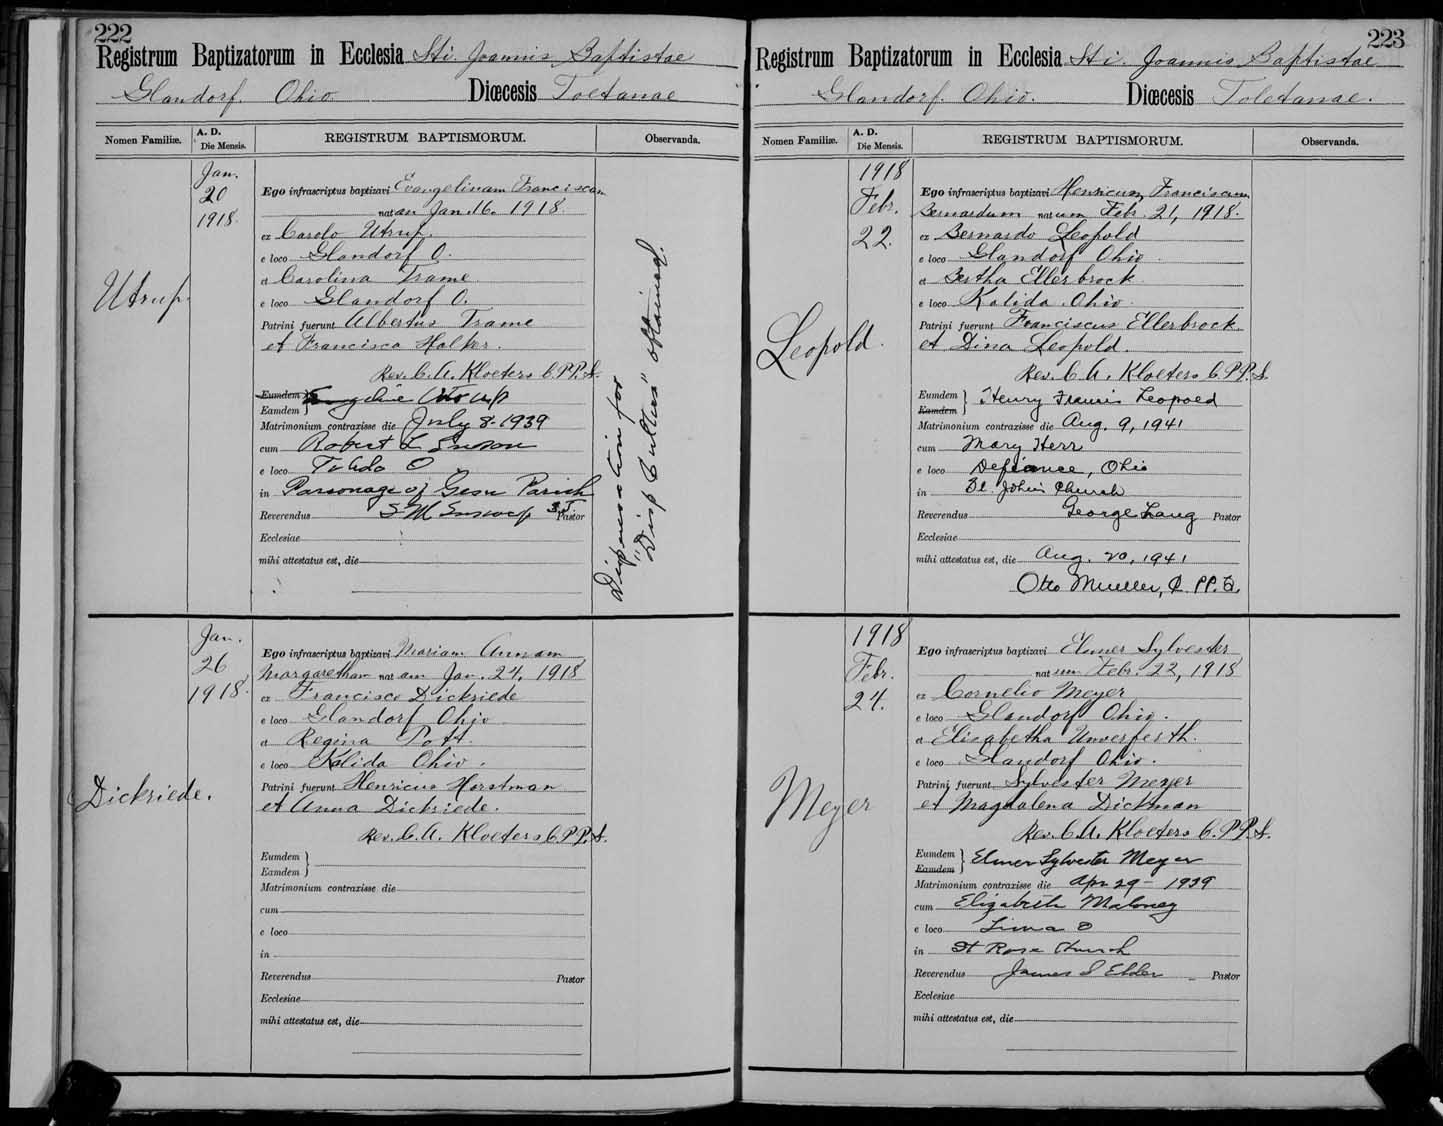 222
Registrum Baptizatorum in Ecclesia Sti. Joannis Baptistae
Glandorf. Ohio. Diœcesis Toletanae
Nomen Familiæ. A. D. Die Mensis. REGISTRUM BAPTISMORUM. Observanda.
Utrup
Jan.
20
1918.
Ego infrascriptus baptizavi Evangelinam Franciscam
natam Jan. 16. 1918.
ex Carolo Utrup.
e loco Glandorf O.
et Carolina Trame
e loco Glandorf O.
Patrini fuerunt Albertus Trame
et Francisca Halker.
Rev. C. A. Kloeters C.PP.S.
Eumdem
Eamdem
Matrimonium contraxisse die July 8-1939
cum Robert L
e loco Toledo O
in Parsonage of Gesu Parish
Reverendus S.J. Pastor
Ecclesiae
mihi attestatus est, die
Dispensation for
"Disp Cultus" obtained.
Dickriede.
Jan.
26
1918.
Ego infrascriptus baptizavi Mariam Annam
Margaretham natam Jan. 24, 1918
ex Francisco Dickriede
e loco Glandorf Ohio
et Regina Pott.
e loco Kalida Ohio.
Patrini fuerunt Henricus Horstman
et Anna Dickriede.
Rev. C. A. Kloeters C.PP.S.
Eumdem
Eamdem
Matrimonium contraxisse die
cum
e loco
in
Reverendus Pastor
Ecclesiae
mihi attestatus est, die
223
Registrum Baptizatorum in Ecclesia Sti. Joannis Baptistae
Glandorf. Ohio. Diœcesis Toletanae.
Nomen Familiæ. A. D. Die Mensis. REGISTRUM BAPTISMORUM. Observanda.
Leopold.
1918
Febr.
22.
Ego infrascriptus baptizavi Henricum Franciscum
Bernardum natum Febr. 21, 1918.
ex Bernardo Leopold
e loco Glandorf Ohio
et Bertha Ellerbrock
e loco Kalida. Ohio.
Patrini fuerunt Franciscus Ellerbrock
et Dina Leopold.
Rev. C. A. Kloeters C.PP.S.
Eumdem
Eamdem Henry Francis Leopold
Matrimonium contraxisse die Aug. 9, 1941
cum Mary Herr
e loco Defiance, Ohio
in St. John's Church
Reverendus George Laug Pastor
Ecclesiae
mihi attestatus est, die Aug. 20, 1941
Otto Mueller, C.PP.S.
Meyer
1918
Febr.
24.
Ego infrascriptus baptizavi Elmer Sylvester
natum Febr. 22, 1918
ex Cornelio Meyer
e loco Glandorf Ohio.
et Elisabetha Unverferth.
e loco Glandorf Ohio.
Patrini fuerunt Sylvester Meyer
et Magdalena Dickman
Rev. C. A. Kloeters C.PP.S.
Eumdem
Eamdem Elmer Sylvester Meyer
Matrimonium contraxisse die Apr 29 - 1939
cum Elizabeth Maloney
e loco Lima O
in St Rose Church
Reverendus James S Elder Pastor
Ecclesiae
mihi attestatus est, die